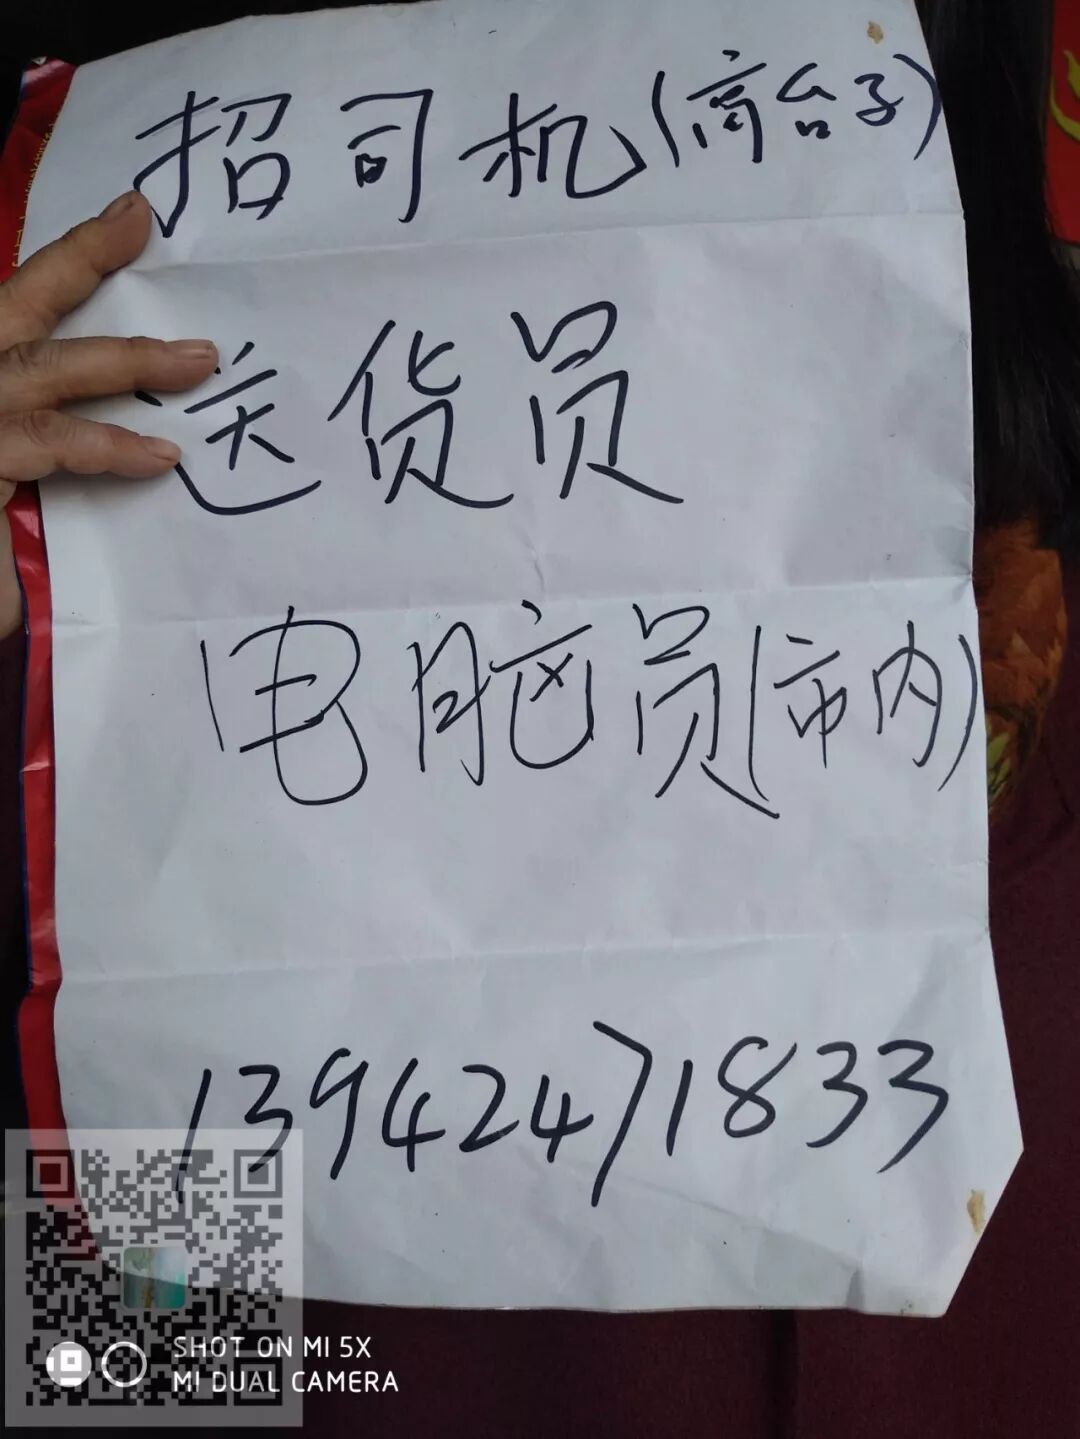 招司机(高台子)
送货员
电脑员(市内)
13942471833
SHOT ON MI 5X
MI DUAL CAMERA